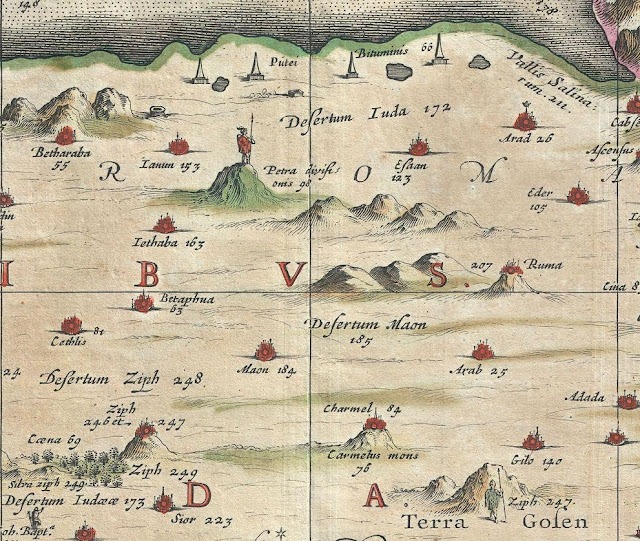 148
278
Putei
Bituminis 66
Vallis Salina:
rum. 211.
Desertum Iuda 172
Arad 26
Betharaba
55
Ianum 153
Esaan
123
Petra divisi
onis 98
R O M A
Eder
105
Iethaba 163
I B V S.
207 Ruma
Betaphua
63
Cethlis 81
Desertum Maon
185
Maon 184
Arab 25
24
Desertum Ziph 248.
Ziph
246 et 247
Charmel 84
Adada
Cæna 69
Carmelus mons
76
Gilo 140
Ziph 249
Silva ziph 249
Desertum Iudææ 173
D A.
Ziph. 247.
Sior 223
Terra Gosen
oh. Bapt.ª